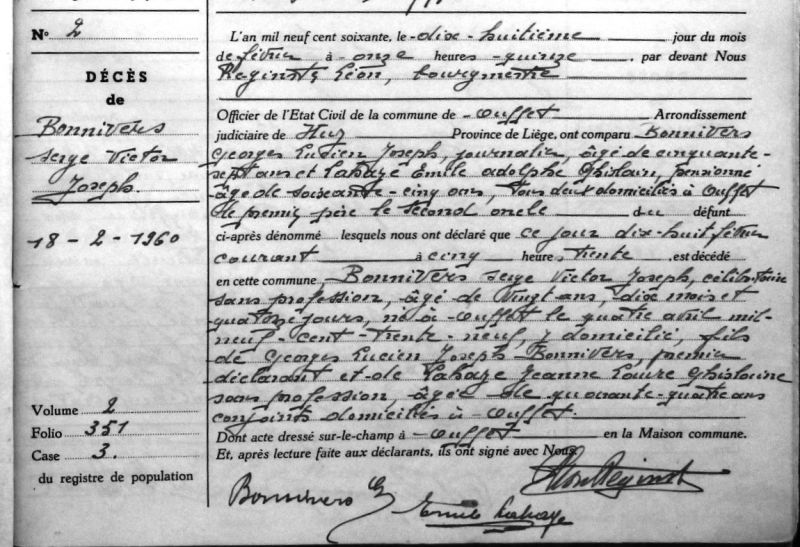 N° 2
DÉCÈS
de
Bonnivers
Serge Victor
Joseph.
18 - 2 - 1960
Volume 2
Folio 351
Case 3.
du registre de population
L'an mil neuf cent soixante, le dix-huitième jour du mois
de février à onze heures quinze, par devant Nous
Reginster Léon, bourgmestre
Officier de l'Etat Civil de la commune de Ouffet Arrondissement
judiciaire de Huy Province de Liège, ont comparu Bonnivers
Georges Lucien Joseph, journalier, âgé de cinquante-
sept ans et Lahaye Emile Adolphe Ghislain, pensionné
âgé de soixante-cinq ans, tous deux domiciliés à Ouffet
le premier père le second oncle du défunt
ci-après dénommé lesquels nous ont déclaré que ce jour dix-huit février
courant à cinq heures trente est décédé
en cette commune, Bonnivers Serge Victor Joseph, célibataire
sans profession, âgé de vingt ans, dix mois et
quatorze jours, né à Ouffet le quatre avril mil-
neuf-cent-trente-neuf, y domicilié, fils
de Georges Lucien Joseph Bonnivers, premier
déclarant et de Lahaye Jeanne Laure Ghislaine
sans profession, âgée de quarante-quatre ans
conjoints domiciliés à Ouffet.
Dont acte dressé sur-le-champ à Ouffet en la Maison commune.
Et, après lecture faite aux déclarants, ils ont signé avec Nous.
Bonnivers G
Emile Lahaye
Léon Reginster